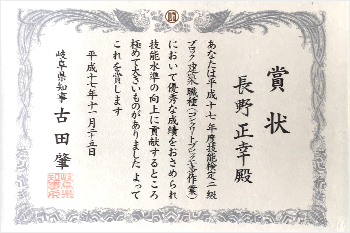 賞状
長野正幸殿
あなたは平成十七年度技能検定二級
ブロック建築職種(コンクリートブロック工事作業)
において優秀な成績をおさめられ
技能水準の向上に貢献するところ
極めて大きいものがありましたよって
これを賞します
平成十七年十一月二十五日
岐阜県知事 古田肇